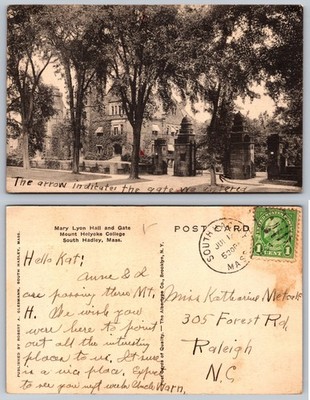 The arrow indicates the gate we entered
Mary Lyon Hall and Gate
Mount Holyoke College
South Hadley, Mass.
POST CARD
Hello Kat:
Anne & I
are passing thru Mt.
H. We wish you
were here to point
out all the interesting
places to us. It sure
is a nice place. Expect
to see you next week
Uncle Warn.
SOUTH
MASS
1 CENT 1
Miss Katharine Metcalf
305 Forest Rd,
Raleigh
N.C.
PUBLISHED BY ROBERT A. GLESMANN, SOUTH HADLEY, MASS.
Quality
The Albertype Co., Brooklyn, N.Y.